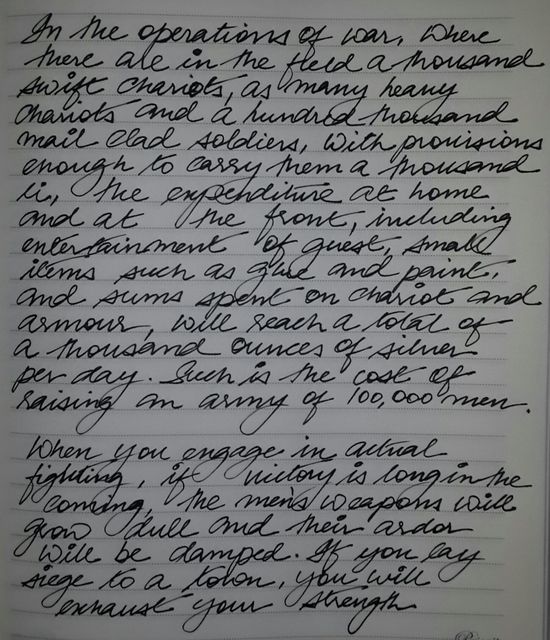 In the operations of war, where
there are in the field a thousand
swift chariots, as many heavy
chariots and a hundred thousand
mail clad soldiers, with provisions
enough to carry them a thousand
li, the expenditure at home
and at the front, including
entertainment of guest, small
items such as glue and paint,
and sums spent on chariot and
armour, will reach a total of
a thousand ounces of silver
per day. Such is the cost of
raising an army of 100,000 men.
When you engage in actual
fighting, if victory is long in the
coming, the men's weapons will
grow dull and their ardor
will be damped. If you lay
siege to a town, you will
exhaust your strength